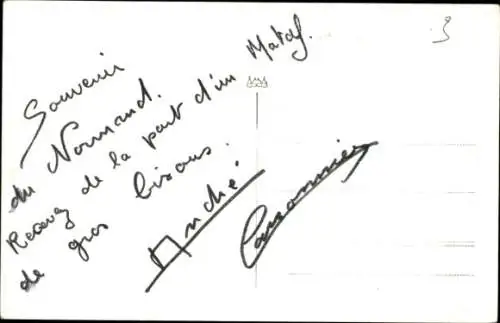 Souvenir
du Normand.
Recevez de la part d'un Mataf.
de gros bisous.
André
Canonnier
3